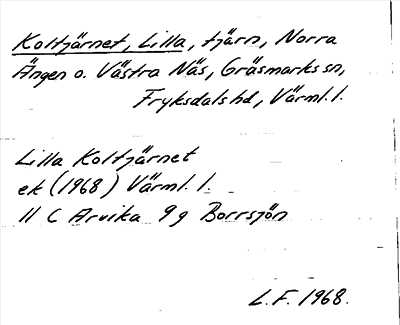 Koltjärnet, Lilla, tjärn, Norra
Ängen o. Västra Näs, Gräsmarks sn,
Fryksdals hd, Värml. l.
Lilla Koltjärnet
ek (1968) Värml. l.
11 C Arvika 9 g Borrsjön
L.F. 1968.